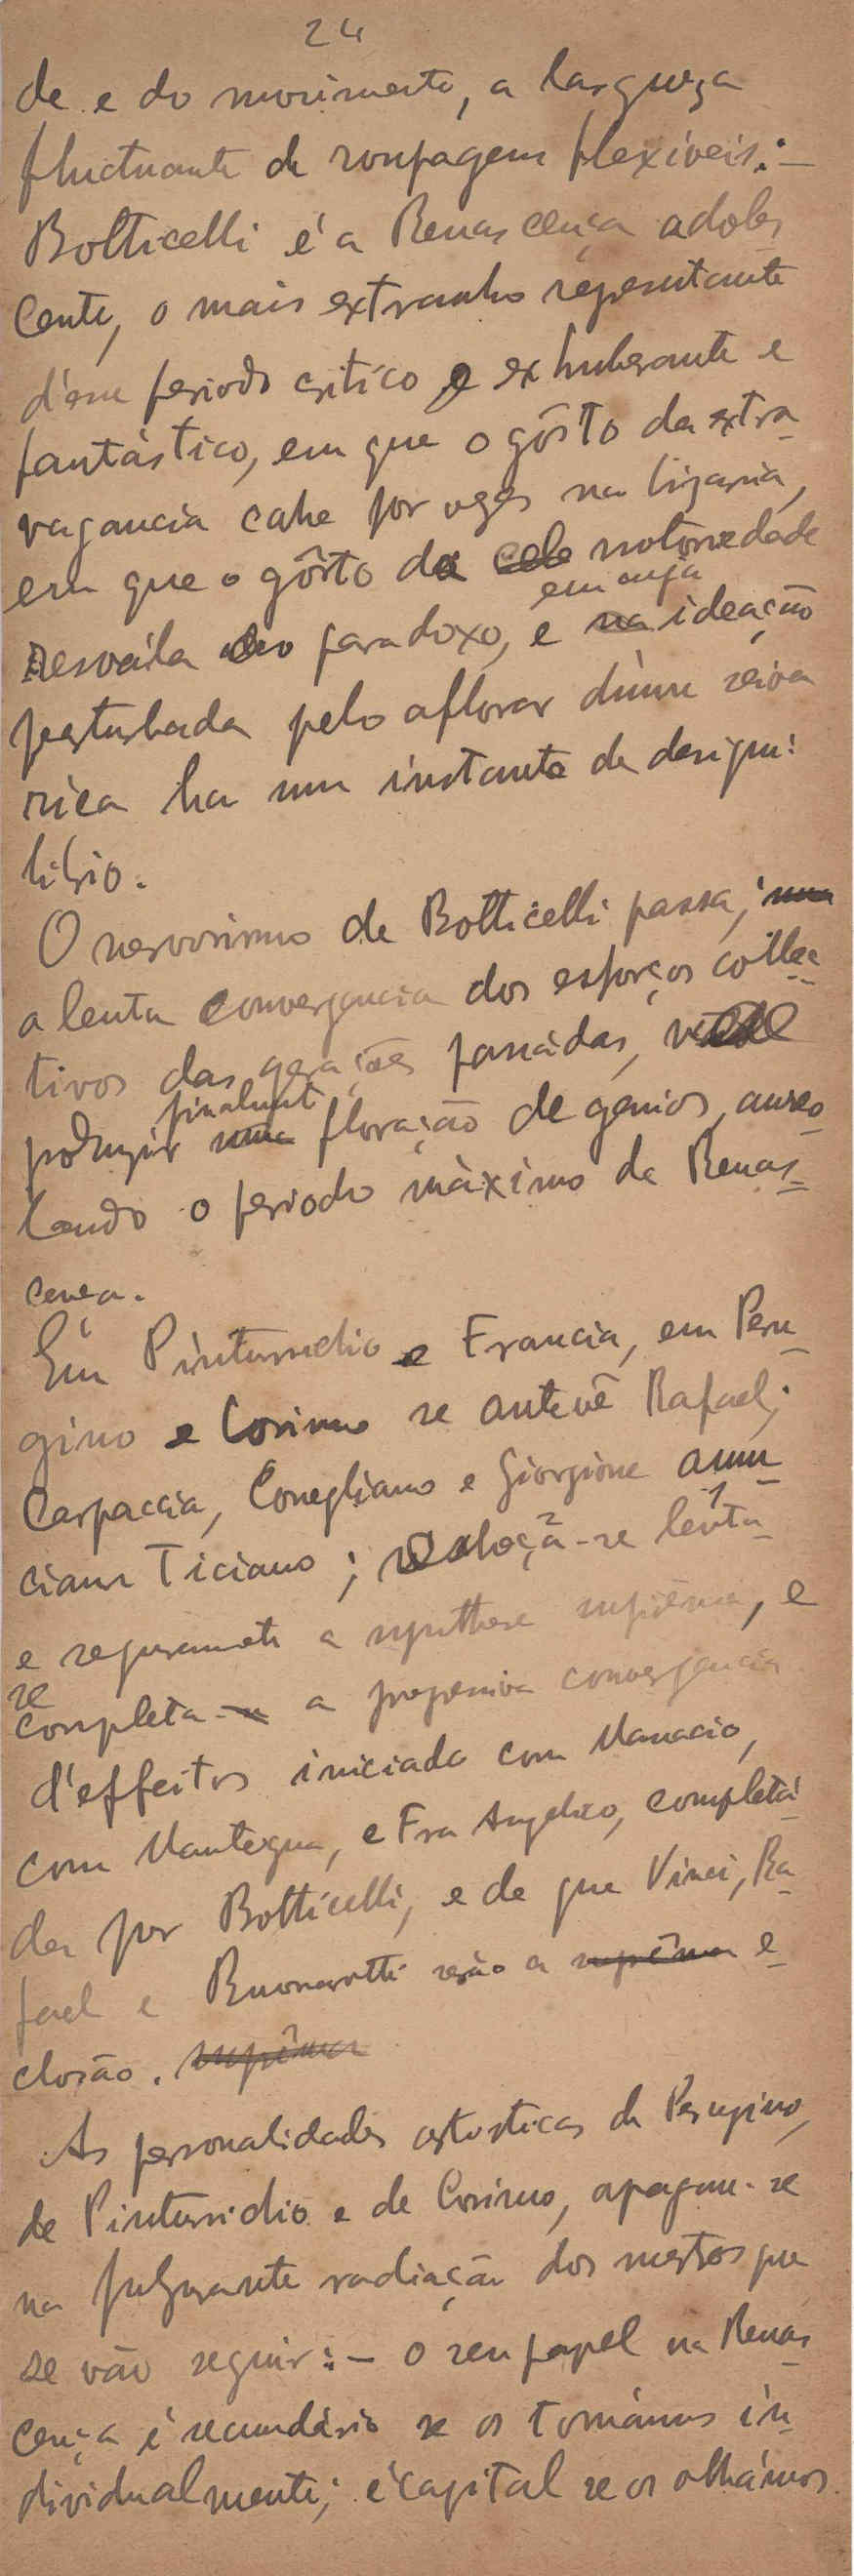 24
de e do movimento, a largueza
fluctuante de roupagens flexíveis:—
Botticelli é a Renascença adoles
cente, o mais extranho representante
d'esse periodo critico e exhuberante e
fantástico, em que o gôsto da extra-
vagancia cahe por vezes na bizarria,
em que o gôsto da notoriedade
resvála no paradoxo, e em cuja ideação
perturbada pelo aflorar d'uma seiva
rica ha um instante de desequi-
librio.
O nervosismo de Botticelli passa;
a lenta convergencia dos esforços collec-
tivos das gerações passádas, vae
produzir finalmente floração de genios, aureo-
lando o periodo máximo da Renas-
cença.
Em Pinturicchio e Francia, em Peru-
gino e Cosimo se antevê Rafael;
Carpaccia, Conegliano e Giorgione annu-
ciam Ticiano; realiça-se lenta-
e seguramente a synthese suprêma, e
se completa a progressiva convergencia
d'effeitos iniciada com Masacio,
com Mantegna, e Fra Angelico, completá-
da por Botticelli, e de que Vinci, Ra-
fael e Buonarotti serão a e-
closão.
As personalidades artisticas de Perugino,
de Pinturicchio e de Cosimo, apagam-se
na fulgurante radiação dos mestres que
se vão seguir:— o seu papel na Renas-
cença é secundário se os tomámos in-
dividualmente; é capital se os olhámos